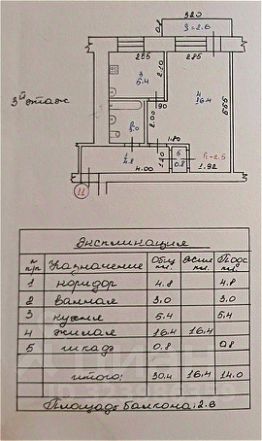 320
S=2.6
255
285
3
5.4
2.10
4
16.4
5.55
3й этаж
90
2
3.0
2.00
1.80
1
4.8
1.20
5
0.8
h=2.5
4.00
1.92
Экспликация
n п/п Назначение Общ пл. Жил пл. Подс пл.
1 коридор 4.8 4.8
2 ванная 3.0 3.0
3 кухня 5.4 5.4
4 жилая 16.4 16.4
5 шкаф 0.8 0.8
итого: 30.4 16.4 14.0
Площадь балкона: 2.6